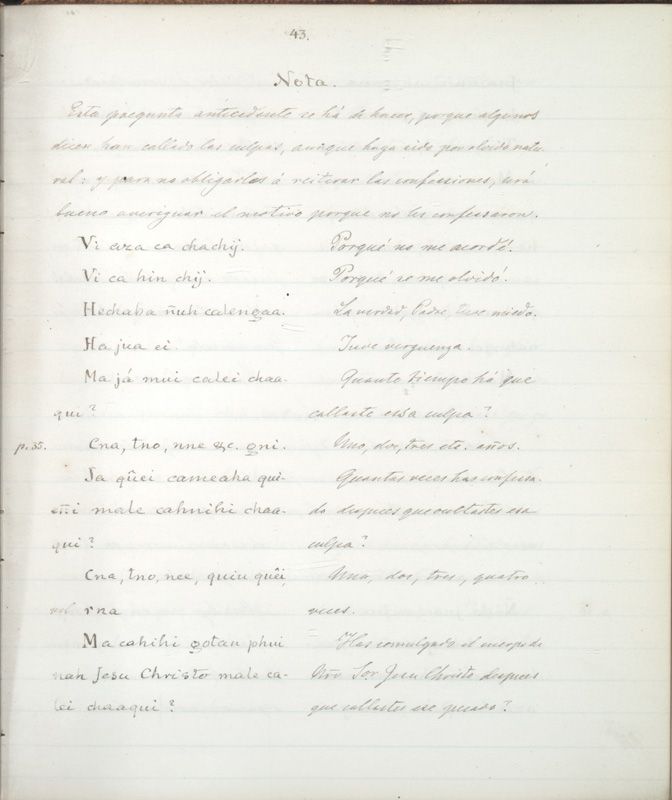 43.
Nota.
Esta pregunta antecedente se há de hacer, porque algunos
dicen han callado las culpas, aunque haya sido por olvido natu-
ral: y para no obligarlos á reiterar las confessiones, será
bueno averiguar el motivo porque no les confessaron.
Vi aza ca chachij. Porqué no me acordé.
Vi ca hin chij. Porqué se me olvidó.
Heckaba ñuh calengaa. La verdad, Padre, tuve miedo.
Ha jua ei. Tuve verguenza.
Ma já mui calei chaa- Quanto tiempo há que
qui? callaste essa culpa?
p. 35. Cna, tno, nne &c. gni. Uno, dos, tres etc. años.
Ja qûei cameaha qui- Quantas veces has confesa-
eñi male cahnihi chaa- do despues que ocultastes esa
qui? culpa?
Cna, tno, nee, quiu qûei, Una, dos, tres, quatro
vel rna veces.
Ma cahihi gotau phui Has comulgado el cuerpo de
nah Jesu Christo male ca- Nro Sor Jesu Christo despues
lei chaaqui? que callastes ese pecado?